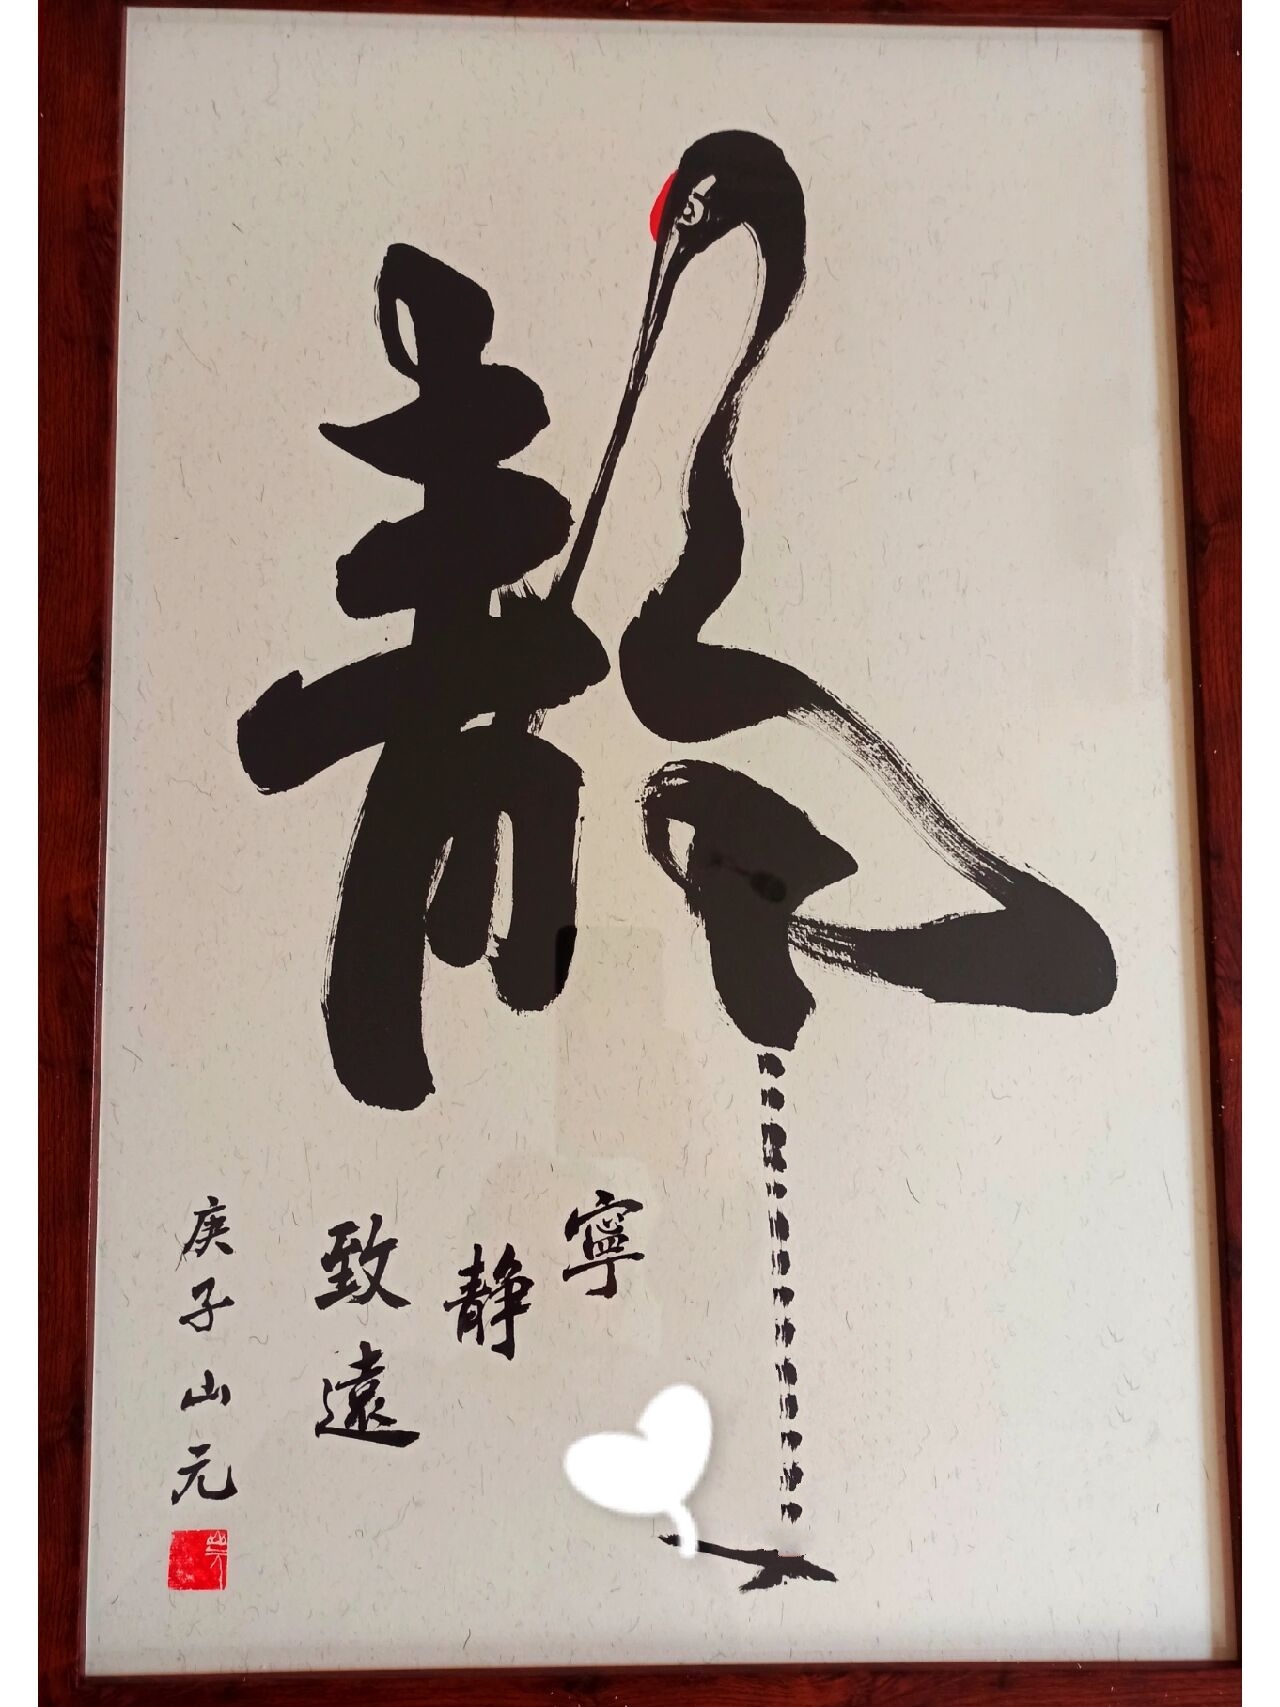 靜
寧
静
致遠
庚子山元